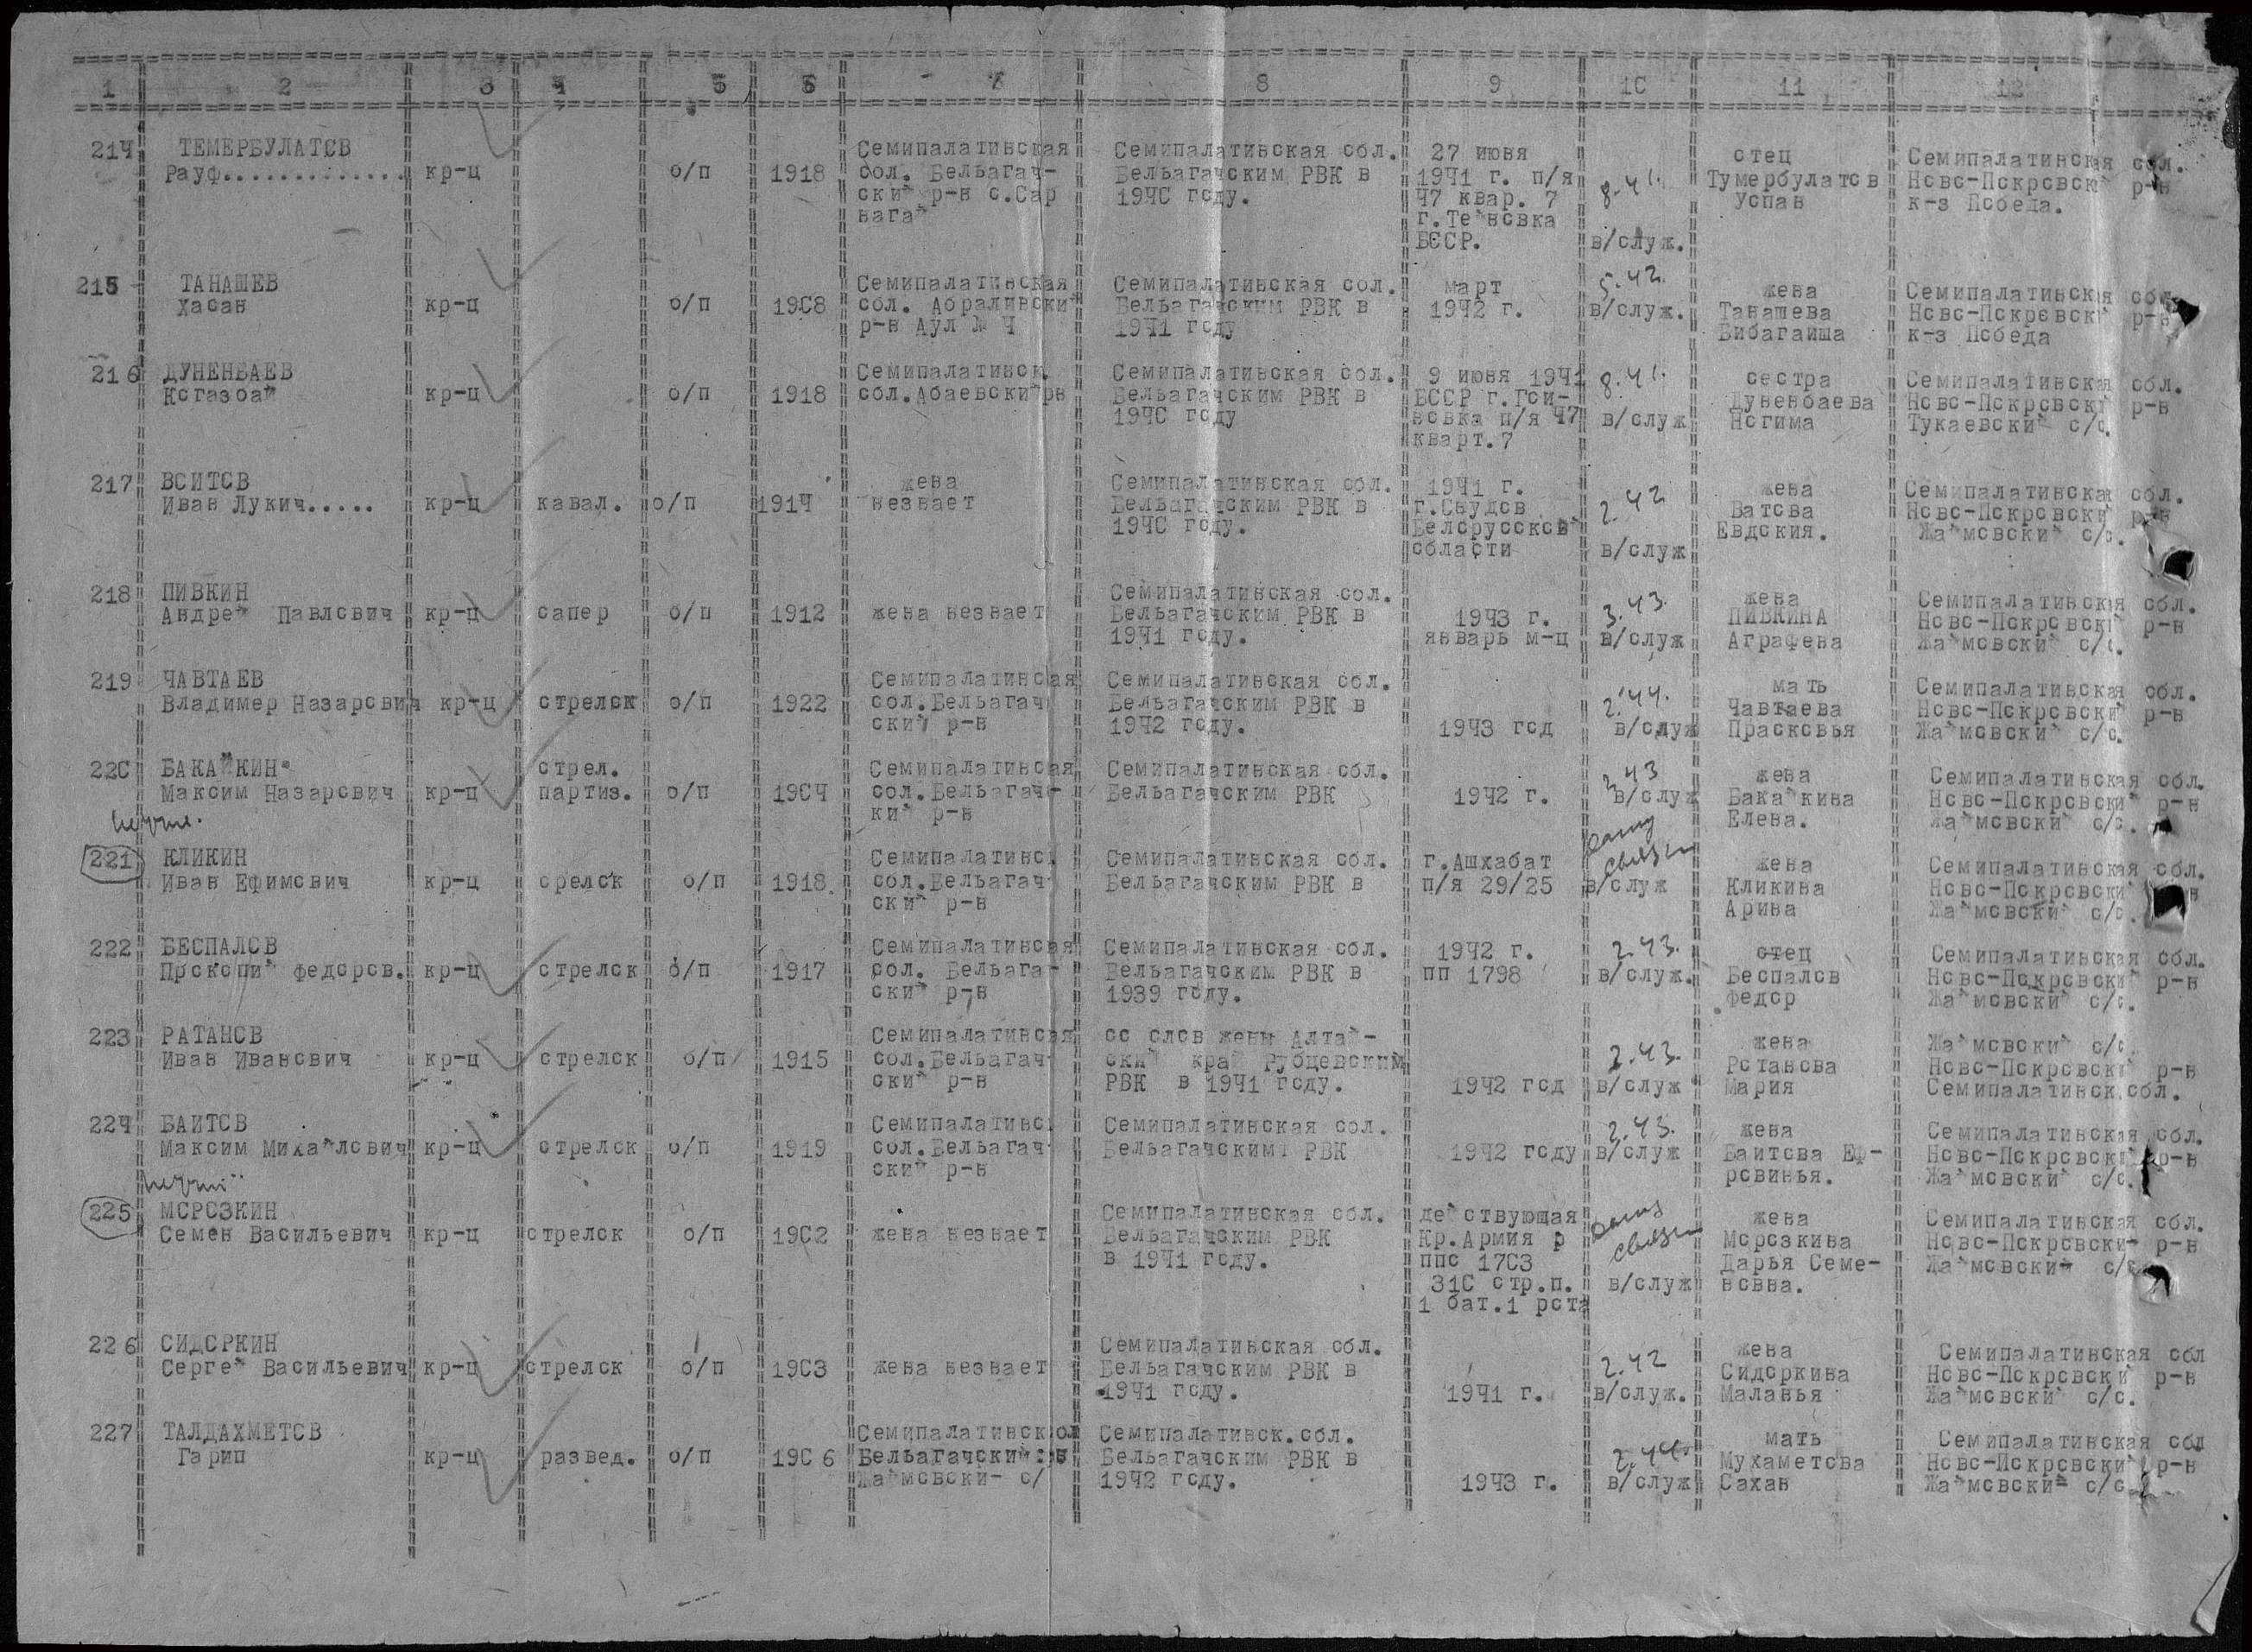 1 2 3 4 5 6 7 8 9 10 11 12
214 ТЕМЕРБУЛАТОВ Рауф.............. кр-ц о/п 1918
Семипалатинская
обл. Бельагач-
ский р-н с.Сар
нагай
Семипалатинская обл.
Бельагачским РВК в
1940 году.
27 июня
1941 г. п/я
47 квар. 7
г.Тейновка
БССР.
8.41.
в/служ.
отец
Тумербулатов
Успан
Семипалатинская обл.
Ново-Покровский р-н
к-з Победа.
215 ТАНАШЕВ Хасан кр-ц о/п 1908
Семипалатинская
обл. Абралинский
р-н Аул № 4
Семипалатинская обл.
Бельагачским РВК в
1941 году
март
1942 г.
5.42.
в/служ.
жена
Танашева
Бибагаиша
Семипалатинская обл.
Ново-Покровский р-н
к-з Победа
216 ДУНЕНБАЕВ Когазбай кр-ц о/п 1918
Семипалатинск.
обл.Абаевский рн
Семипалатинская обл.
Бельагачским РВК в
1940 году
9 июня 1941
БССР г.Гой-
новка п/я 47
кварт.7
8.41.
в/служ
сестра
Дуненбаева
Ногима
Семипалатинская обл.
Ново-Покровский р-н
Тукаевский с/с.
217 ВОИТОВ Иван Лукич..... кр-ц кавал. о/п 1914
жена
незнает
Семипалатинская обл.
Бельагачским РВК в
1940 году.
1941 г.
г.Саудов
Белорусской
области
2.42
в/служ
жена
Ватова
Евдокия.
Семипалатинская обл.
Ново-Покровский р-н
Жаймовский с/с.
218 ПИВКИН Андрей Павлович кр-ц сапер о/п 1912
жена незнает
Семипалатинская обл.
Бельагачским РВК в
1941 году.
1943 г.
январь м-ц
3.43.
в/служ
жена
ПИВКИНА
Аграфена
Семипалатинская обл.
Ново-Покровский р-н
Жаймовский с/с.
219 ЧАВТАЕВ Владимер Назарович кр-ц стрелок о/п 1922
Семипалатинская
обл.Бельагач
ский р-н
Семипалатинская обл.
Бельагачским РВК в
1942 году.
1943 год
2.44.
в/служ
мать
Чавтаева
Прасковья
Семипалатинская обл.
Ново-Покровский р-н
Жаймовский с/с.
220 БАКАЙКИН Максим Назарович кр-ц
стрел.
партиз. о/п 1904
Семипалатинская
обл.Бельагач-
кий р-н
Семипалатинская обл.
Бельагачским РВК
1942 г.
3.43
в/служ
жена
Бакайкина
Елена.
Семипалатинская обл.
Ново-Покровский р-н
Жаймовский с/с.
221 КЛИКИН Иван Ефимович кр-ц срелок о/п 1918.
Семипалатинс
обл.Бельагач-
ский р-н
Семипалатинская обл.
Бельагачским РВК в
г.Ашхабат
п/я 29/25
связи
в/служ
жена
Кликина
Арина
Семипалатинская обл.
Ново-Покровский р-н
Жаймовский с/с.
222 БЕСПАЛОВ Прокопий Федоров. кр-ц стрелок о/п 1917
Семипалатинская
обл. Бельага-
ский р-н
Семипалатинская обл.
Бельагачским РВК в
1939 году.
1942 г.
пп 1798
2.43.
в/служ.
отец
Беспалов
Федор
Семипалатинская обл.
Ново-Покровский р-н
Жаймовский с/с.
223 РАТАНОВ Иван Иванович кр-ц стрелок о/п 1915
Семипалатинская
обл.Бельагач
ский р-н
со слов жены Алтай-
ский край Рубцевским
РВК в 1941 году.
1942 год
2.43.
в/служ
жена
Ротанова
Мария
Жаймовский с/с.
Ново-Покровский р-н
Семипалатинск.обл.
224 БАИТОВ Максим Михайлович кр-ц стрелок о/п 1919
Семипалатинс
обл.Бельагач-
ский р-н
Семипалатинская обл.
Бельагачским РВК
1942 году
2.43.
в/служ
жена
Баитова Еф-
ровинья.
Семипалатинская обл.
Ново-Покровский р-н
Жаймовский с/с.
225 МОРОЗКИН Семен Васильевич кр-ц стрелок о/п 1902
жена незнает
Семипалатинская обл.
Бельагачским РВК
в 1941 году.
действующая
Кр.Армия р
ппс 1703
310 стр.п.
1 бат.1 рота
связи
в/служ
жена
Морозкина
Дарья Семе-
новна.
Семипалатинская обл.
Ново-Покровский р-н
Жаймовский с/с
226 СИДОРКИН Сергей Васильевич кр-ц стрелок о/п 1903
жена незнает
Семипалатинская обл.
Бельагачским РВК в
1941 году.
1941 г.
2.42
в/служ.
жена
Сидоркина
Маланья
Семипалатинская обл
Ново-Покровский р-н
Жаймовский с/с.
227 ТАЛДАХМЕТОВ Гарип кр-ц развед. о/п 1906
Семипалатинск ол
Бельагачский р-н
Жаймовский с/
Семипалатинск.обл.
Бельагачским РВК в
1942 году.
1943 г.
2.44.
в/служ
мать
Мухаметова
Сахан
Семипалатинская обл
Ново-Покровский р-н
Жаймовский с/с